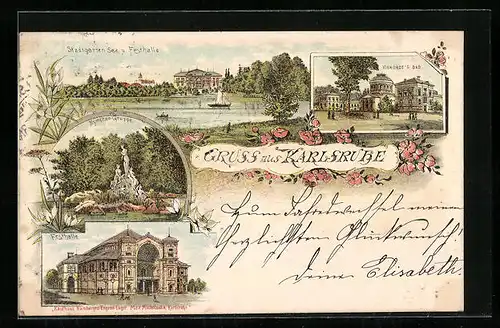 Stadtgarten See u. Festhalle
Vierordt's Bad
Gruppe
GRUSS aus KARLSRUHE
Festhalle
Zum Jahreswechsel meinen
herzlichsten Glückwunsch!
deine Elisabeth.